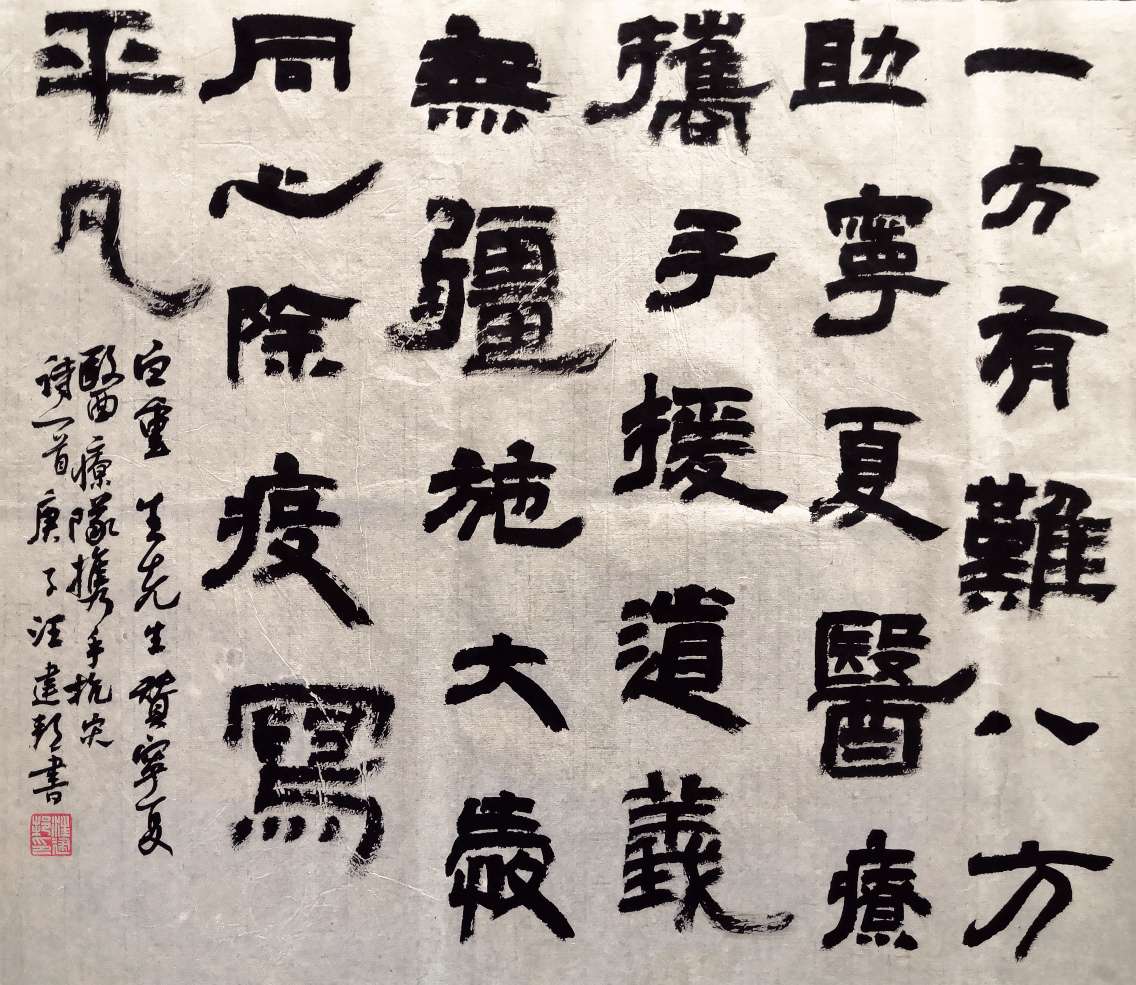 一方有難八方
助寧夏醫療
攜手援道義
無疆施大愛
同心除疫寫
平凡
白重生先生贊寧夏
醫療隊携手抗灾
詩一首庚子汪建邦書